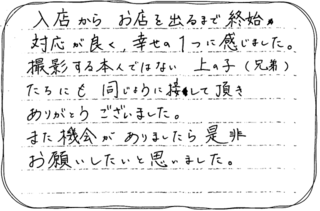 入店から お店を出るまで 終始、
対応が良く、幸せの1つに感じました。
撮影する本人ではない 上の子(兄弟)
たちにも 同じように接して頂き
ありがとうございました。
また機会が ありましたら是非
お願いしたいと思いました。